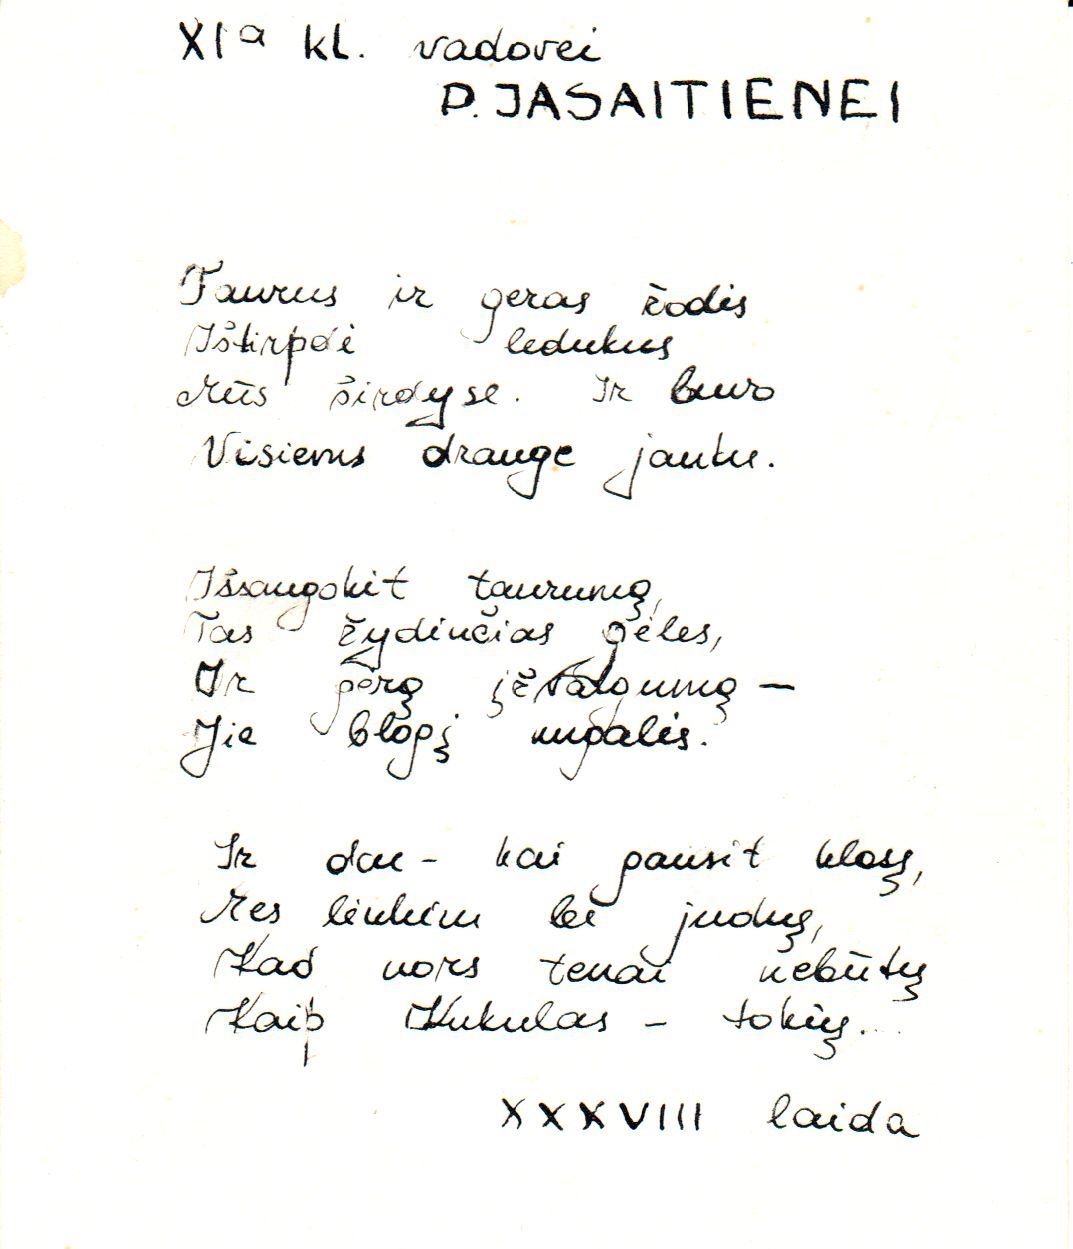 XIᵃ kl. vadovei
P. JASAITIENEI
Taurus ir geras žodis
Ištirpdė ledukus
Mūs širdyse. Ir buvo
Visiems drauge jauku.
Išsaugokit taurumą,
Tas žydinčias gėles,
Ir gerą įžvalgumą –
Jie blogį nugalės.
Ir dar – kai gausit klasę,
Mes linkim lei judrų,
Kad nors tenai nebūtų
Kaip Kukulas – tokių...
XXXVIII laida